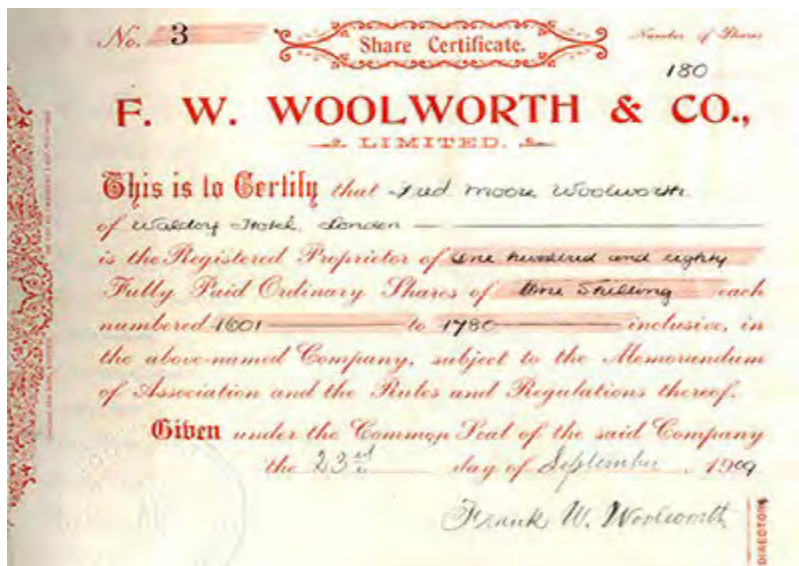 No. 3
Share Certificate.
Number of Shares
180
F. W. WOOLWORTH & CO.,
LIMITED.
This is to Certify that Fred Moore Woolworth
of Waldorf Hotel, London
is the Registered Proprietor of One hundred and eighty
Fully Paid Ordinary Shares of One Shilling each
numbered 1601 to 1780 inclusive, in
the above-named Company, subject to the Memorandum
of Association and the Rules and Regulations thereof.
Given under the Common Seal of the said Company
the 23rd day of September, 1909
Frank W. Woolworth
DIRECTORS